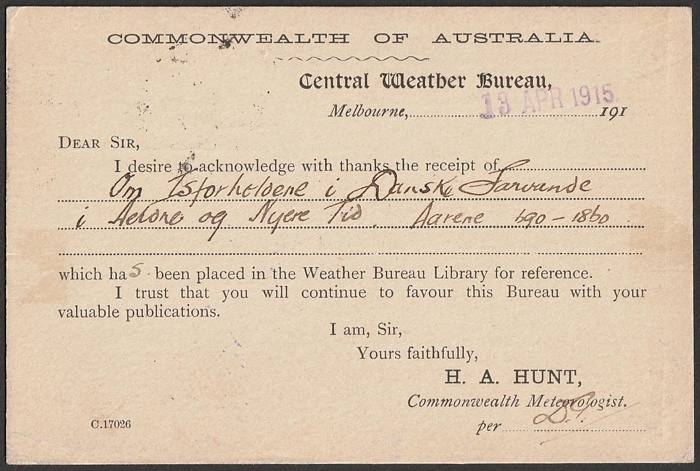 COMMONWEALTH OF AUSTRALIA.
Central Weather Bureau,
Melbourne, 13 APR 1915 191
DEAR SIR,
I desire to acknowledge with thanks the receipt of
Om Isforholdene i Danske Farvande
i Aeldre og Nyere Tid. Aarene 690-1860
which has been placed in the Weather Bureau Library for reference.
I trust that you will continue to favour this Bureau with your
valuable publications.
I am, Sir,
Yours faithfully,
H. A. HUNT,
Commonwealth Meteorologist.
per
C.17026